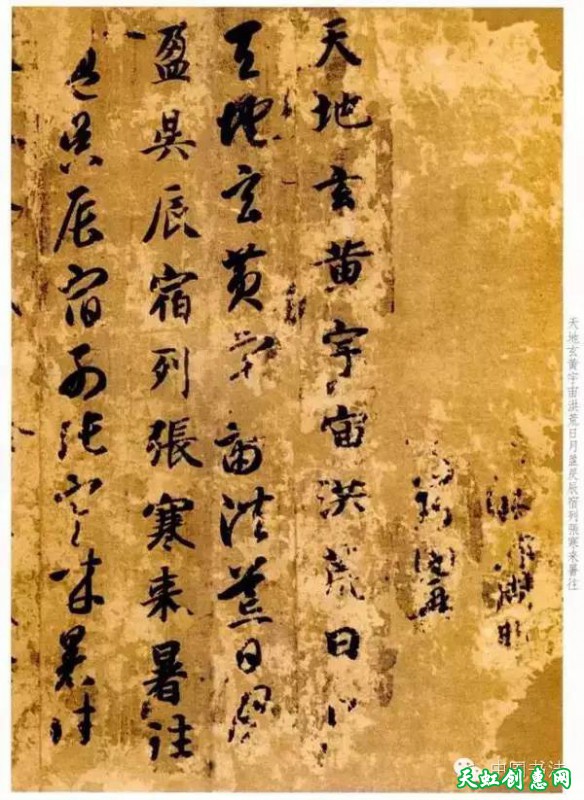 天地玄黄宇宙洪荒日月盈昃辰宿列張寒来暑往
天地玄黄宇宙洪荒日月
天地玄黄宇宙洪荒日月
盈昃辰宿列張寒来暑往
盈昃辰宿列張寒来暑往
中国书法
天虹创惠网